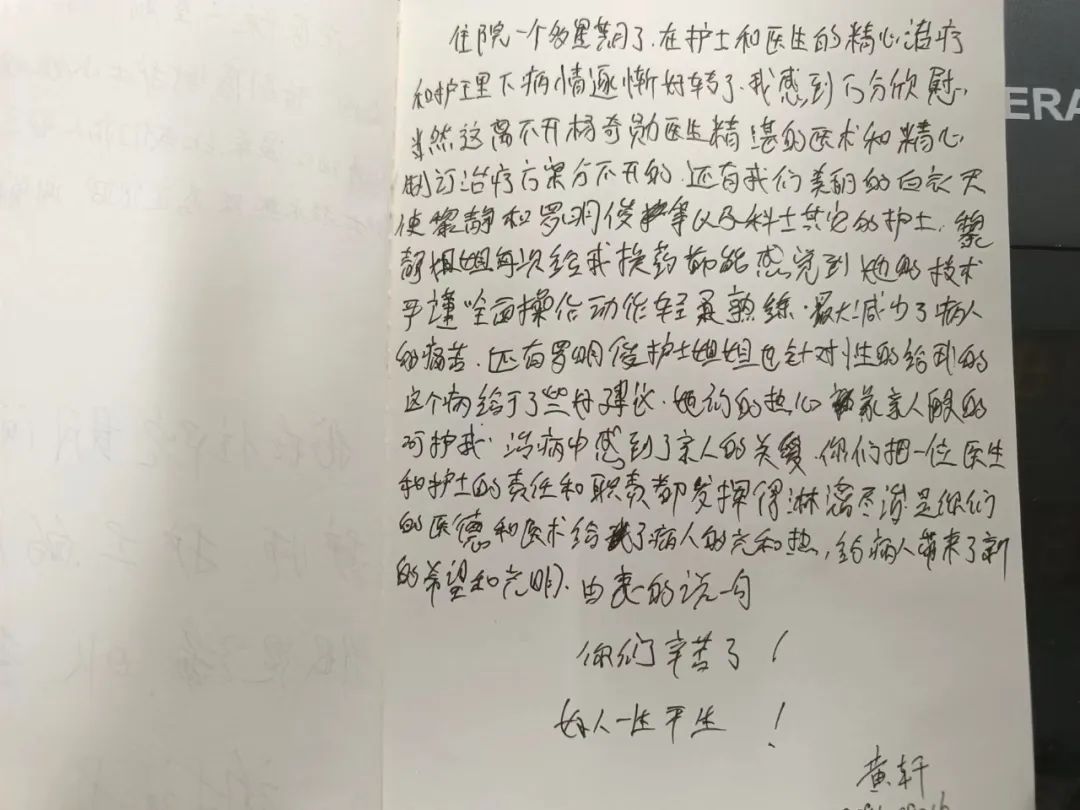 住院一个多星期了.在护士和医生的精心治疗
和护理下病情逐惭好转了.我感到万分欣慰.
当然这离不开杨奇勋医生精湛的医术和精心
制订治疗方案分不开的.还有我们美丽的白衣天
使黎静和罗明俊等以及科士其它的护士.黎
静姐姐每次给我换药都能感觉到她的技术
严谨全面操作动作轻柔熟练.最大减少了病人
的痛苦.还有罗明俊护士姐姐也针对性的给我的
这个病给于了些好建议.她们的热心家亲人般的
呵护我.治病中感到了亲人的关爱.你们把一位医生
和护士的责任和职责都发挥得淋漓尽致是你们
的医德和医术给了病人的光和热,给病人带来了新
的希望和光明.由衷的说一句
你们辛苦了!
好人一生平生!
黄轩
ERA